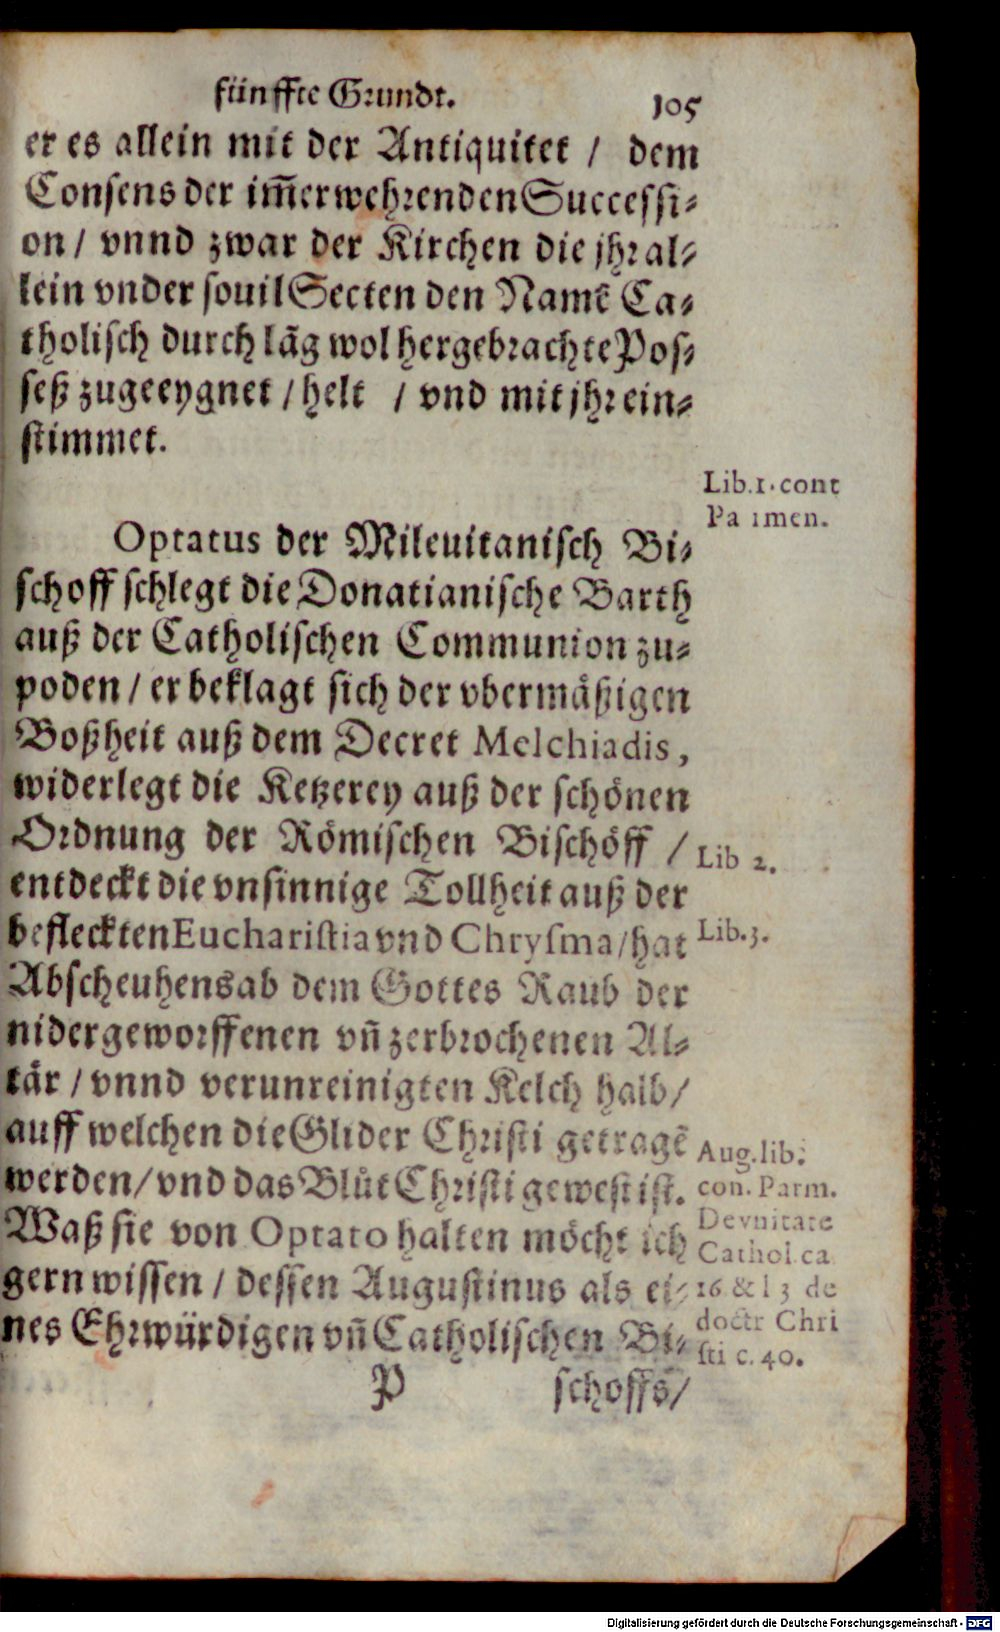 fünffte Grundt. 105
er es allein mit der Antiquitet / dem
Consens der im̃erwehrenden Successi⸗
on / vnnd zwar der Kirchen die jhr al⸗
lein vnder souil Secten den Namẽ Ca⸗
tholisch durch lãg wol hergebrachte Pos⸗
seß zugeeygnet / helt / vnd mit jhr ein⸗
stimmet.
Lib.1.cont
Pa imen.
Optatus der Mileuitanisch Bi⸗
schoff schlegt die Donatianische Barth
auß der Catholischen Communion zu⸗
poden / er beklagt sich der vbermäßigen
Boßheit auß dem Decret Melchiadis,
widerlegt die Ketzerey auß der schönen
Ordnung der Römischen Bischöff /
Lib 2.
entdeckt die vnsinnige Tollheit auß der
befleckten Eucharistia vnd Chrysma / hat
Lib.3.
Abscheuhens ab dem Gottes Raub der
nidergeworffenen vñ zerbrochenen Al⸗
tär / vnnd verunreinigten Kelch halb /
auff welchen die Glider Christi getragẽ
werden / vnd das Blůt Christi gewest ist.
Waß sie von Optato halten möcht ich
gern wissen / dessen Augustinus als ei⸗
nes Ehrwürdigen vñ Catholischen Bi⸗
Aug.lib.
con. Parm.
De vnitate
Cathol. ca
16 & l 3 de
doctr Chri
sti c. 40.
P schoffs /
Digitalisierung gefördert durch die Deutsche Forschungsgemeinschaft - DFG